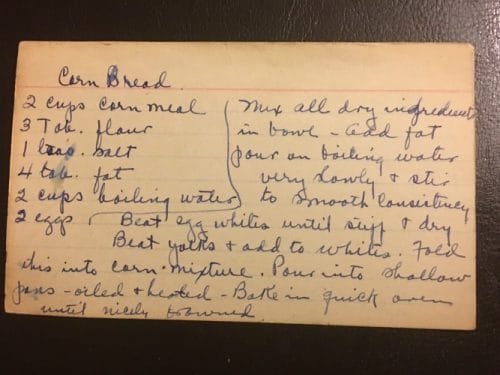 Corn Bread.
2 cups corn meal
3 Tab. flour
1 teas. salt
4 tab. fat
2 cups boiling water
2 eggs
Mix all dry ingredients
in bowl - add fat
pour on boiling water
very slowly & stir
to smooth consistency
Beat egg whites until stiff & dry
Beat yolks & add to whites. Fold
this into corn mixture. Pour into shallow
pans - oiled & heated - Bake in quick oven
until nicely browned.